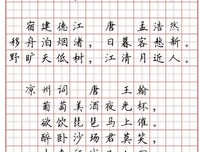 宿建德江 唐 孟浩然
移舟泊烟渚，日暮客愁新。
野旷天低树，江清月近人。
凉州词 唐 王翰
葡萄美酒夜光杯，
欲饮琵琶马上催。
醉卧沙场君莫笑，